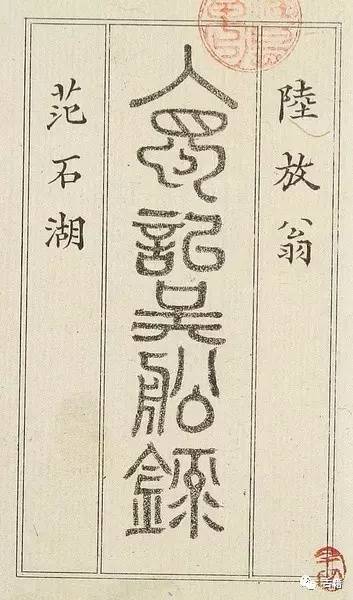 陸放翁
入蜀記吳船錄
范石湖
古籍